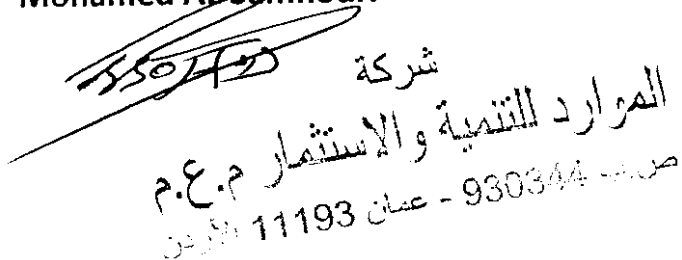 Mohamed
شركة
الموارد للتنمية والاستثمار م.ع.م
ص.ب 930344 - عمان 11193 الأردن